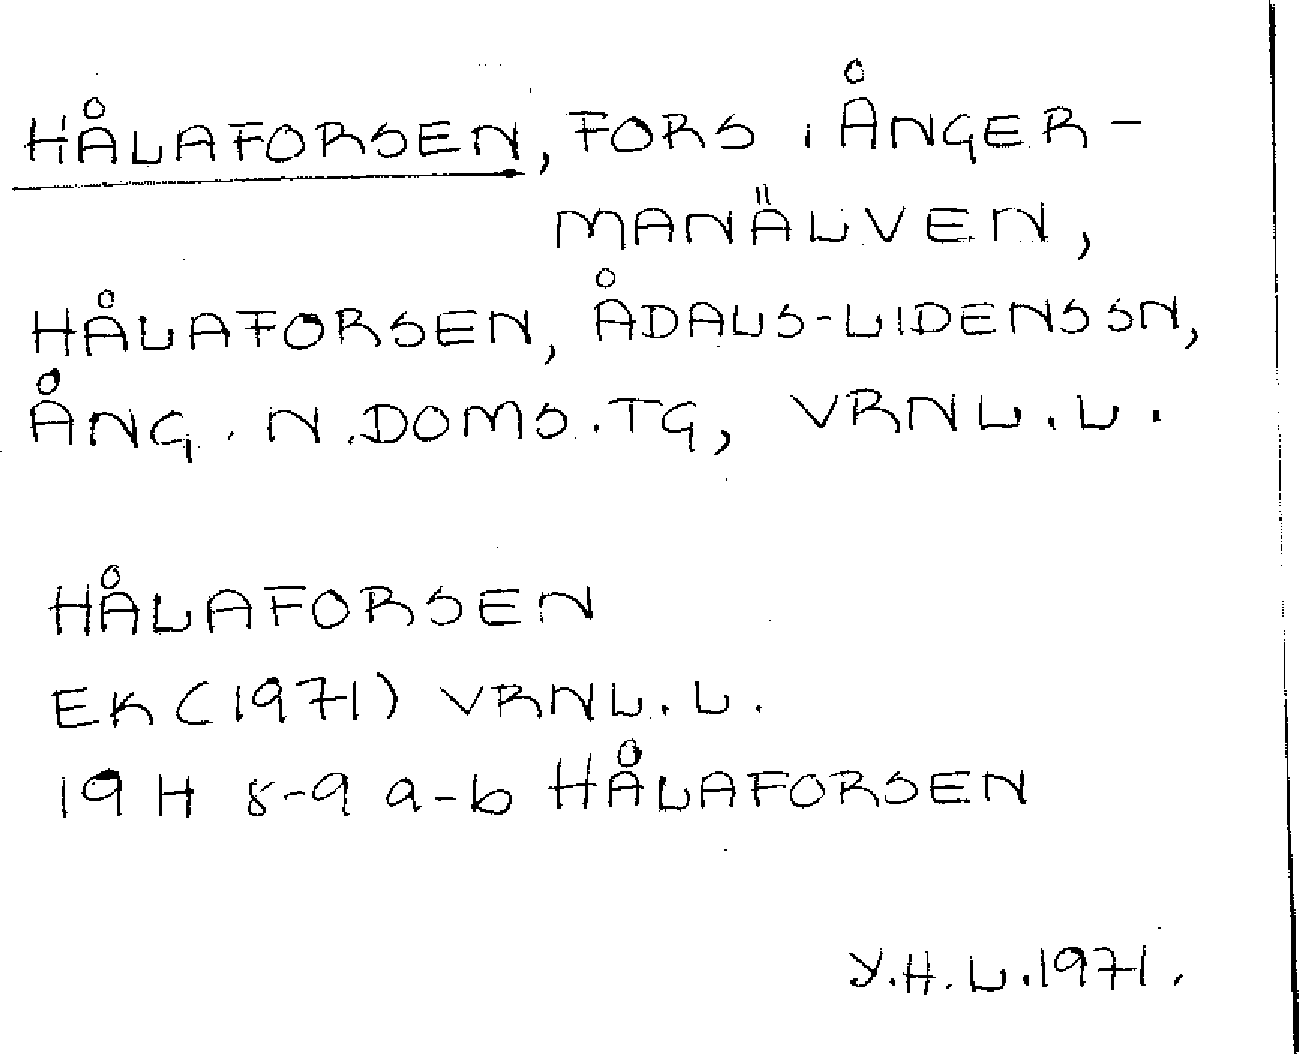 HÅLAFORSEN, FORS I ÅNGER-
MANÄLVEN,
HÅLAFORSEN, ÅDALS-LIDENS SN,
ÅNG. N. DOMS. TG, VRNL. L.
HÅLAFORSEN
EK (1971) VRNL. L.
19 H 8-9 a-b HÅLAFORSEN
Y.H.L. 1971.